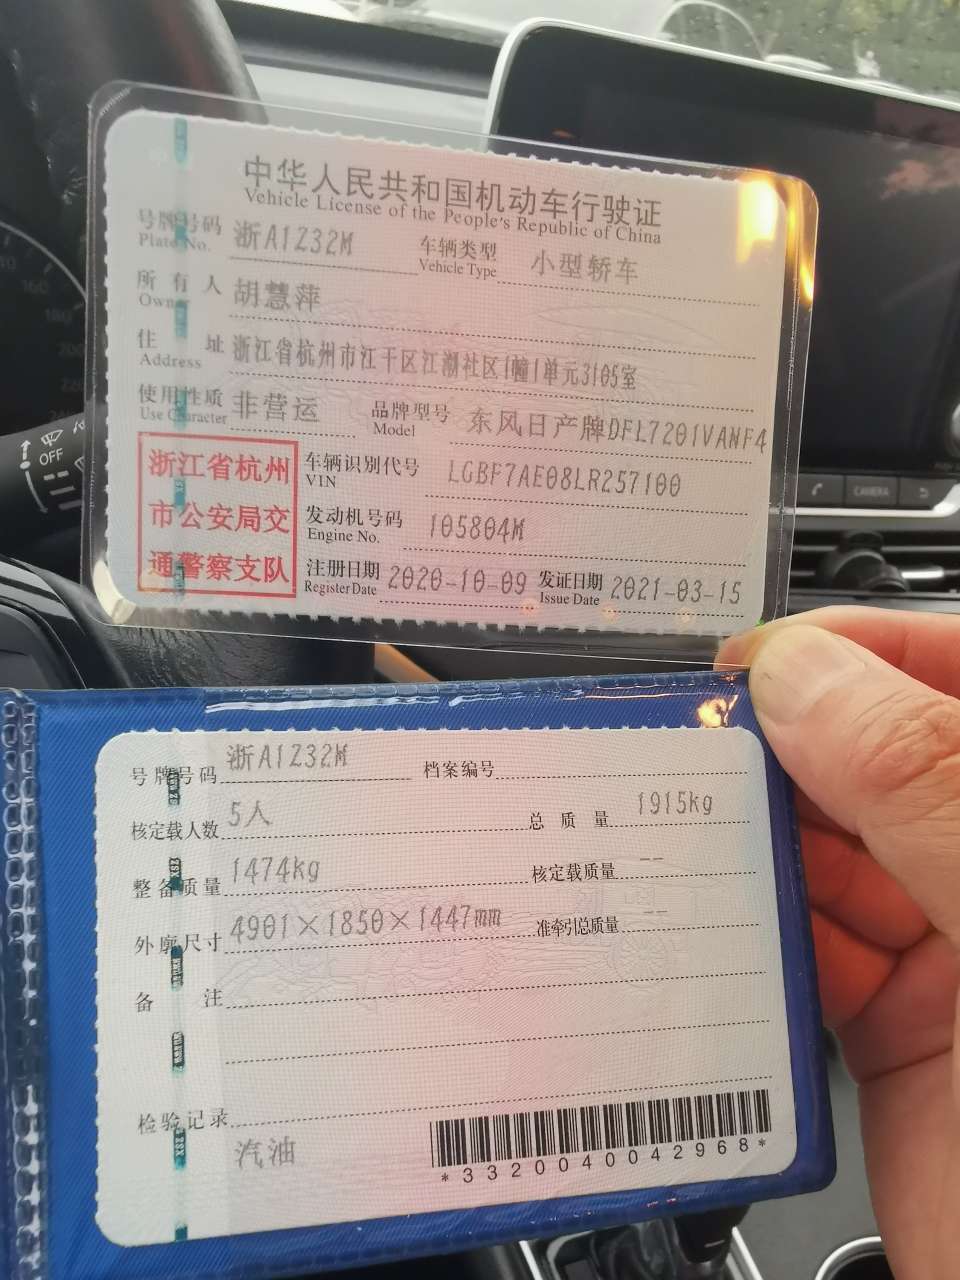 中华人民共和国机动车行驶证
Vehicle License of the People's Republic of China
号牌号码 浙A1Z32M 车辆类型 小型轿车
Plate No. Vehicle Type
所有人 胡慧萍
Owner
住址 浙江省杭州市江干区江潮社区1幢1单元3105室
Address
使用性质 非营运 品牌型号 东风日产牌DFL7201VANF4
Use Character Model
浙江省杭州
市公安局交
通警察支队
车辆识别代号 LGBF7AE08LR257100
VIN
发动机号码 105804M
Engine No.
注册日期 2020-10-09 发证日期 2021-03-15
Register Date Issue Date
号牌号码 浙A1Z32M 档案编号
核定载人数 5人 总质量 1915kg
整备质量 1474kg 核定载质量 --
外廓尺寸 4901×1850×1447mm 准牵引总质量 --
备注
检验记录
汽油
*3320040042968*
OFF
CAMERA